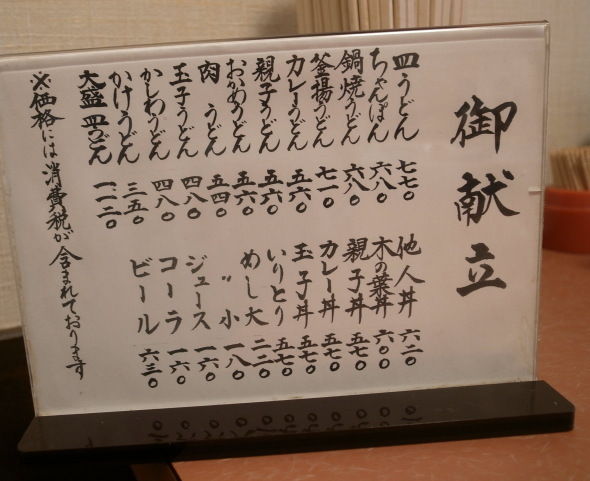 御献立
皿うどん 七七〇
ちゃんぽん 六八〇
鍋焼うどん 六八〇
釜揚うどん 七一〇
カレーうどん 五六〇
親子うどん 五六〇
おかめうどん 五六〇
肉うどん 五四〇
玉子うどん 四八〇
かしわうどん 四八〇
かけうどん 三五〇
大盛皿うどん 一一二〇
他人丼 六二〇
木の葉丼 六〇〇
親子丼 五七〇
カレー丼 五七〇
玉子丼 五七〇
いりとり 五七〇
めし大 二二〇
〃小 一八〇
ジュース 一六〇
コーラ 一六〇
ビール 六三〇
※価格には消費税が含まれております